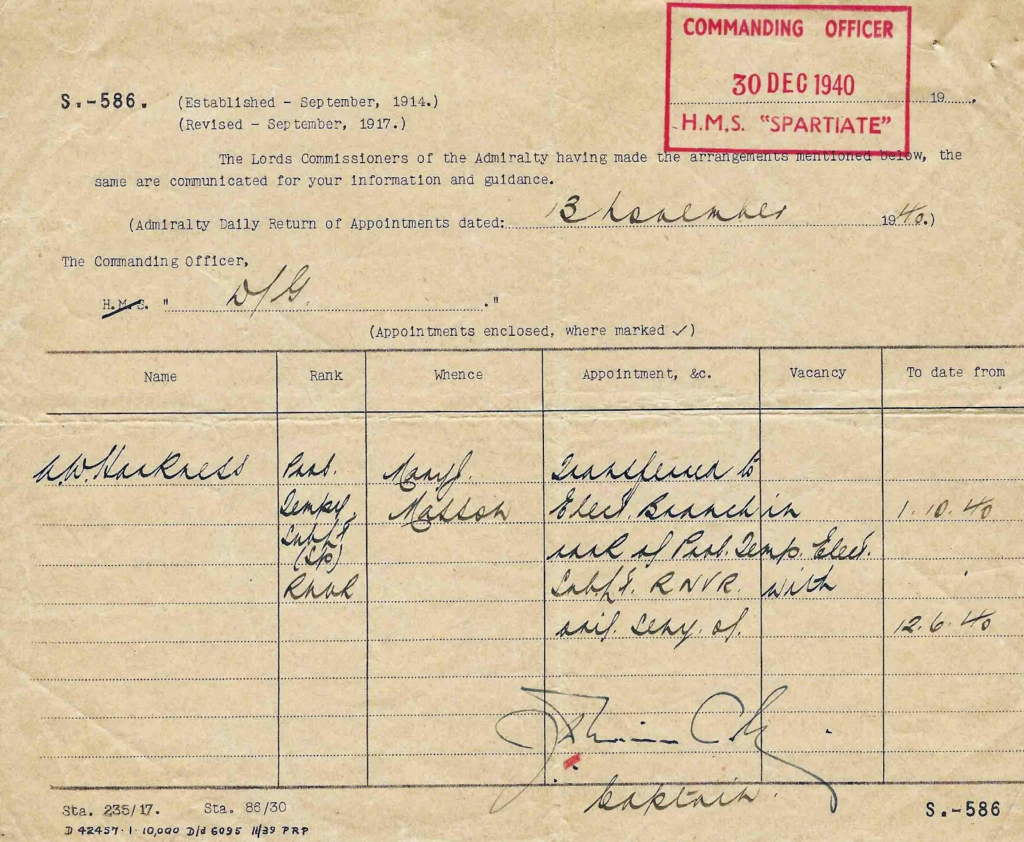 COMMANDING OFFICER
30 DEC 1940
H.M.S. "SPARTIATE"
19....
S.-586. (Established - September, 1914.)
(Revised - September, 1917.)
The Lords Commissioners of the Admiralty having made the arrangements mentioned below, the
same are communicated for your information and guidance.
(Admiralty Daily Return of Appointments dated: 13 November 1940.)
The Commanding Officer,
H.M.S. " D/G. ."
(Appointments enclosed, where marked ✓)
Name Rank Whence Appointment, &c. Vacancy To date from
Harkness Prob. Transferred to
Tempy. Elect. Branch in 1.10.40
Sub/Lt rank of Prob. Temp. Elect.
(Sp)
RNVR Sub/Lt. RNVR. with
Seny. of. 12.6.40
Captain.
Sta. 235/17. Sta. 86/30 S.-586
D 42457·1·10,000 D/d 6095 11/39 PRP